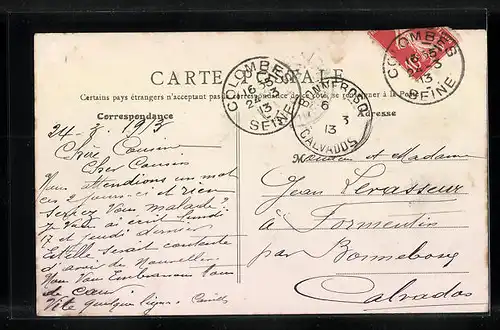 CARTE POSTALE
Certains pays étrangers n'acceptant pas la Correspondance de ce côté, se renseigner à la Poste
Correspondance
Adresse
COLOMBES
16 35
24 3
13
SEINE
COLOMBES
16 35
24 3
13
SEINE
BONNEBOSQ
6
3
13
CALVADOS
24-3-1913
Chère Cousine
Cher Cousin
Nous attendions un mot
ces 2 jours-ci et rien
Seriez Vous malade?
Je Vous ai écrit Lundi
17 et jeudi dernier
Estelle serait contente
d'avoir de Nouvelles
Nous Vous Embrassons tous
de cœur.
Vite quelques lignes.
Monsieur et Madame
Jean Levasseur
à Formentin
par Bonnebosq
Calvados